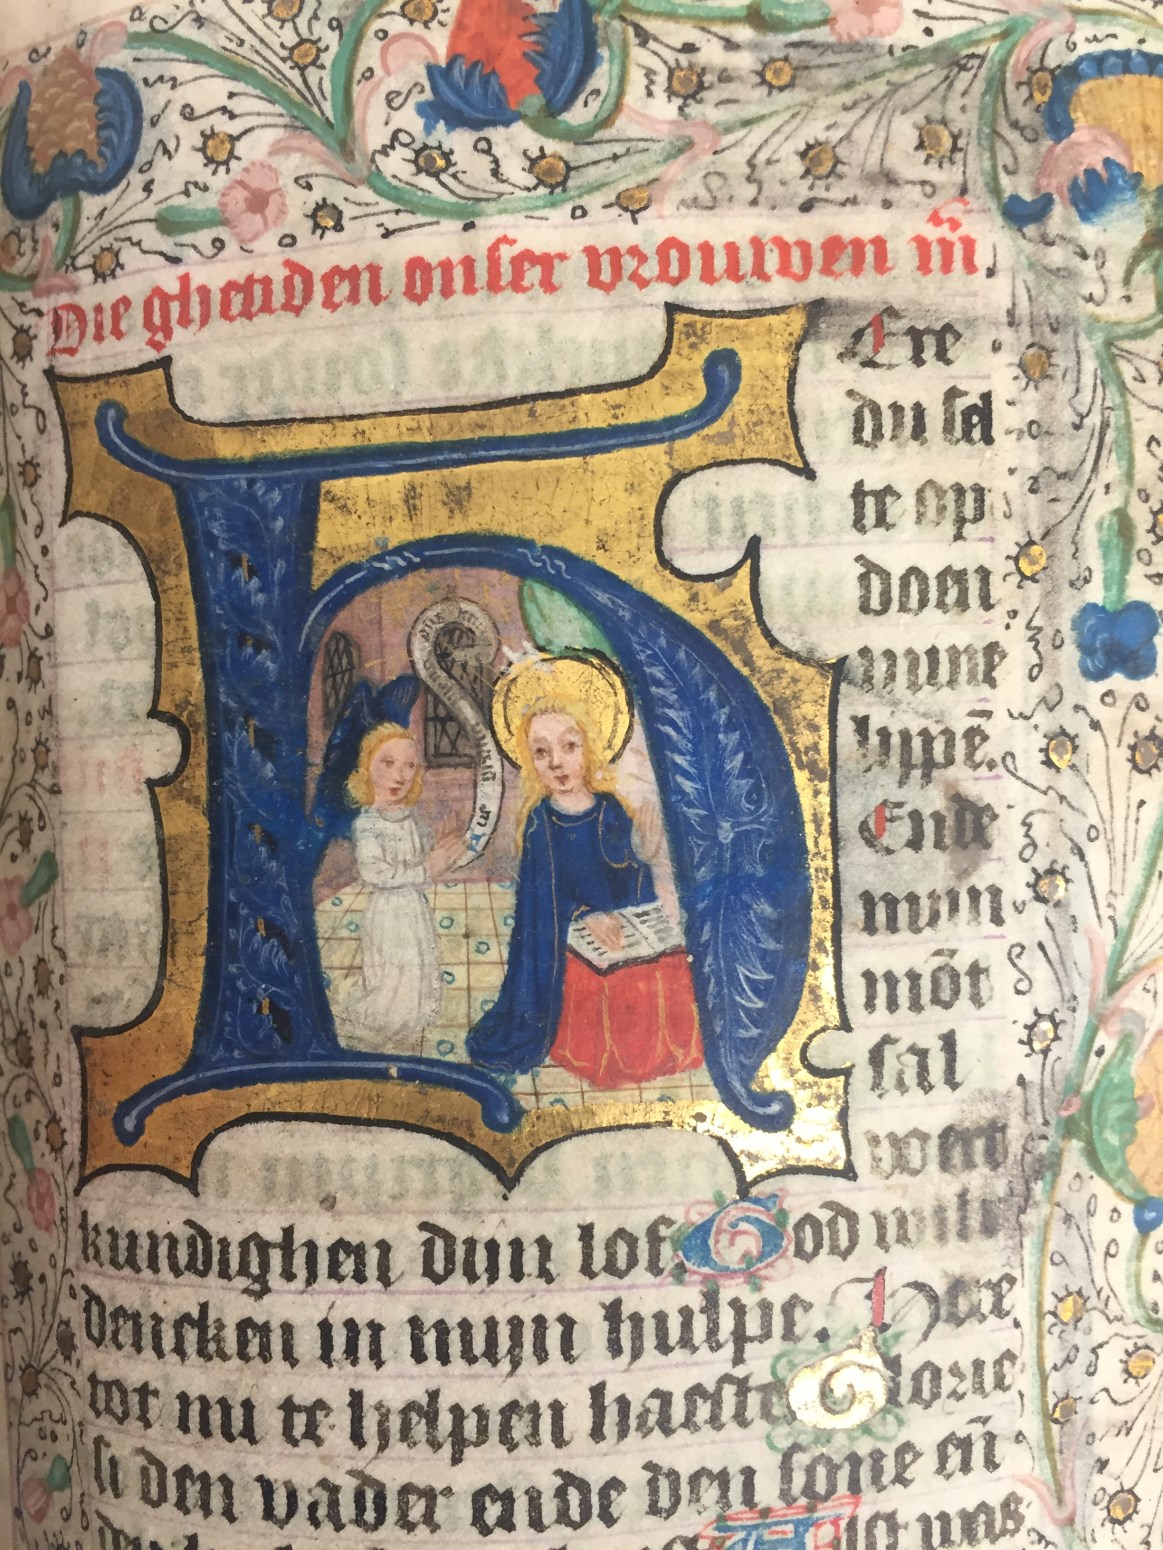 Die ghetiden onser vrouwen m̄
H Ere
du sel
te op
doen
mine
lippē.
Ende
mijn
mōt
sal
vert
kundighen dijn lof. God wilt
dencken in mijn hulpe. Here
tot mi te helpen haeste Glorie
si den vader ende den sone eñ